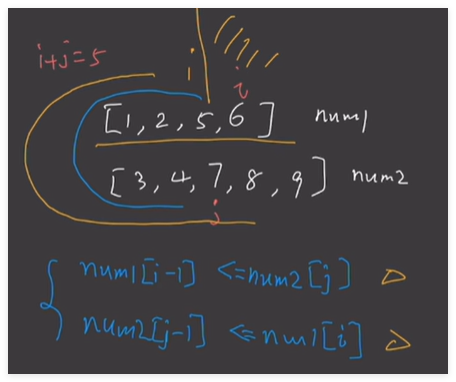 i+j=5
i
i
[1, 2, 5, 6] num1
[3, 4, 7, 8, 9] num2
j
num1[i-1] <=num2[j]
num2[j-1] <=num1[i]